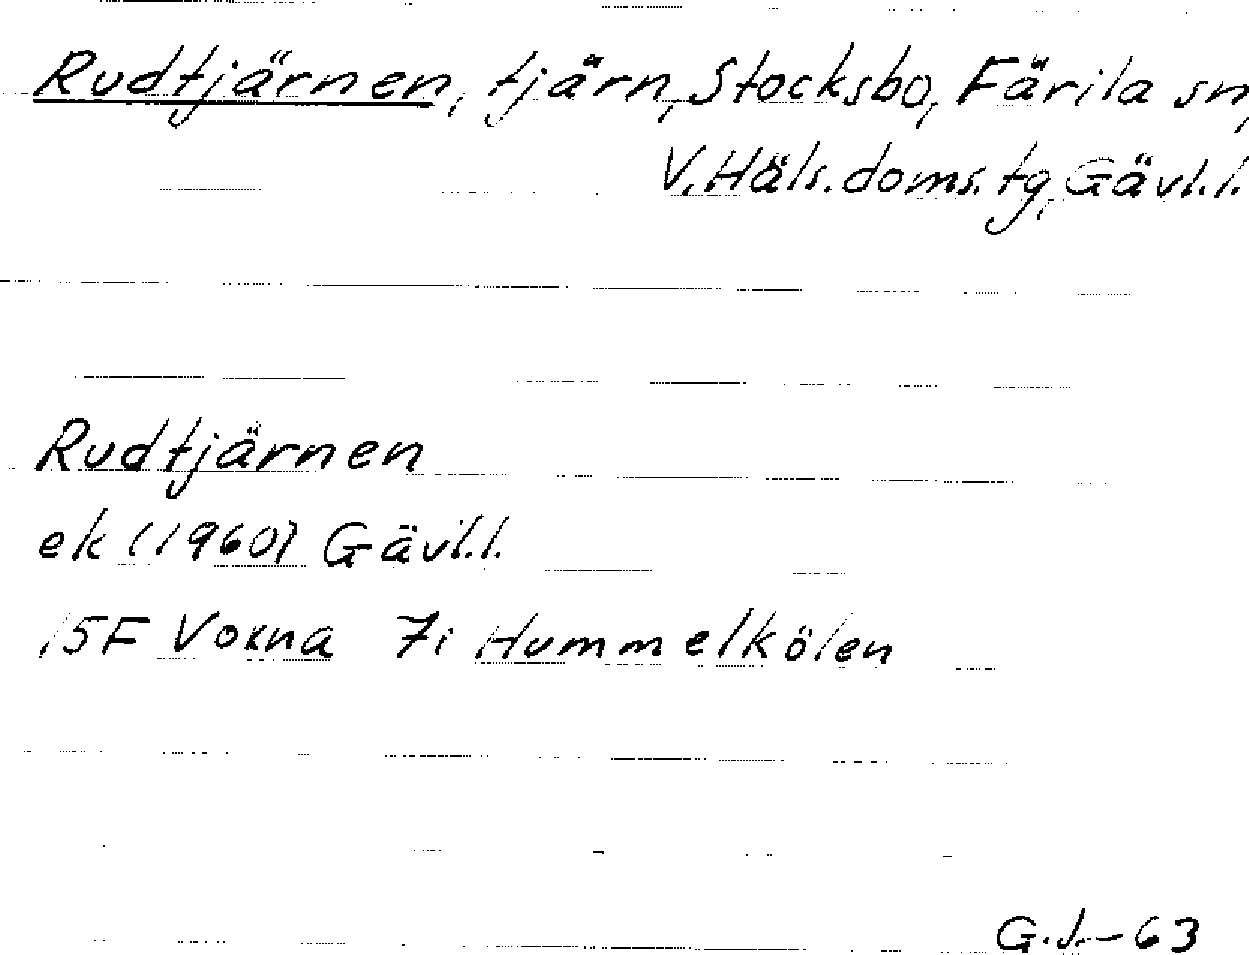 Rudtjärnen, tjärn, Stocksbo, Färila sn,
V. Häls. doms. tg, Gävl. l.
Rudtjärnen
ek (1960) Gävl. l.
15F Voxna 7i Hummelkölen
G.J.-63